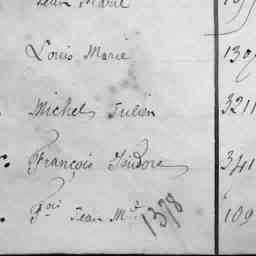 Jean Marie
Louis Marie 130
Michel Julien 3211
François Isidore 341
Fois Jean Mie 1378 109